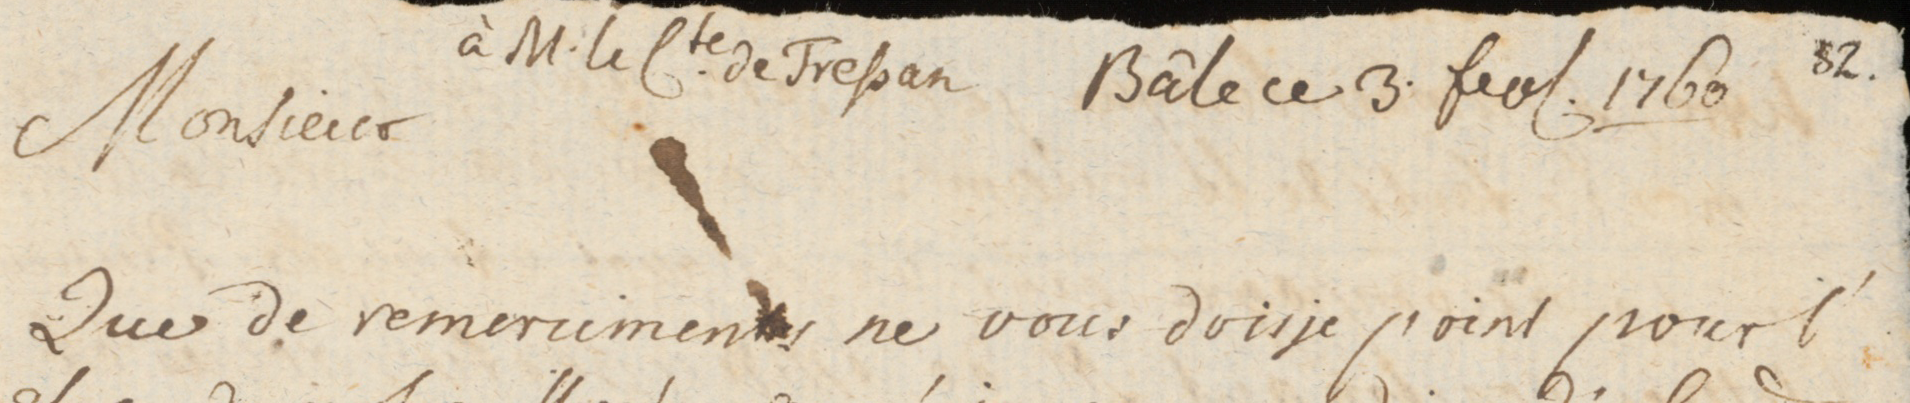 à M. le Cte. de Tressan Bâle ce 3. fevr. 1760 82.
Monsieur
Que de remercimens ne vous doisje point pour l'